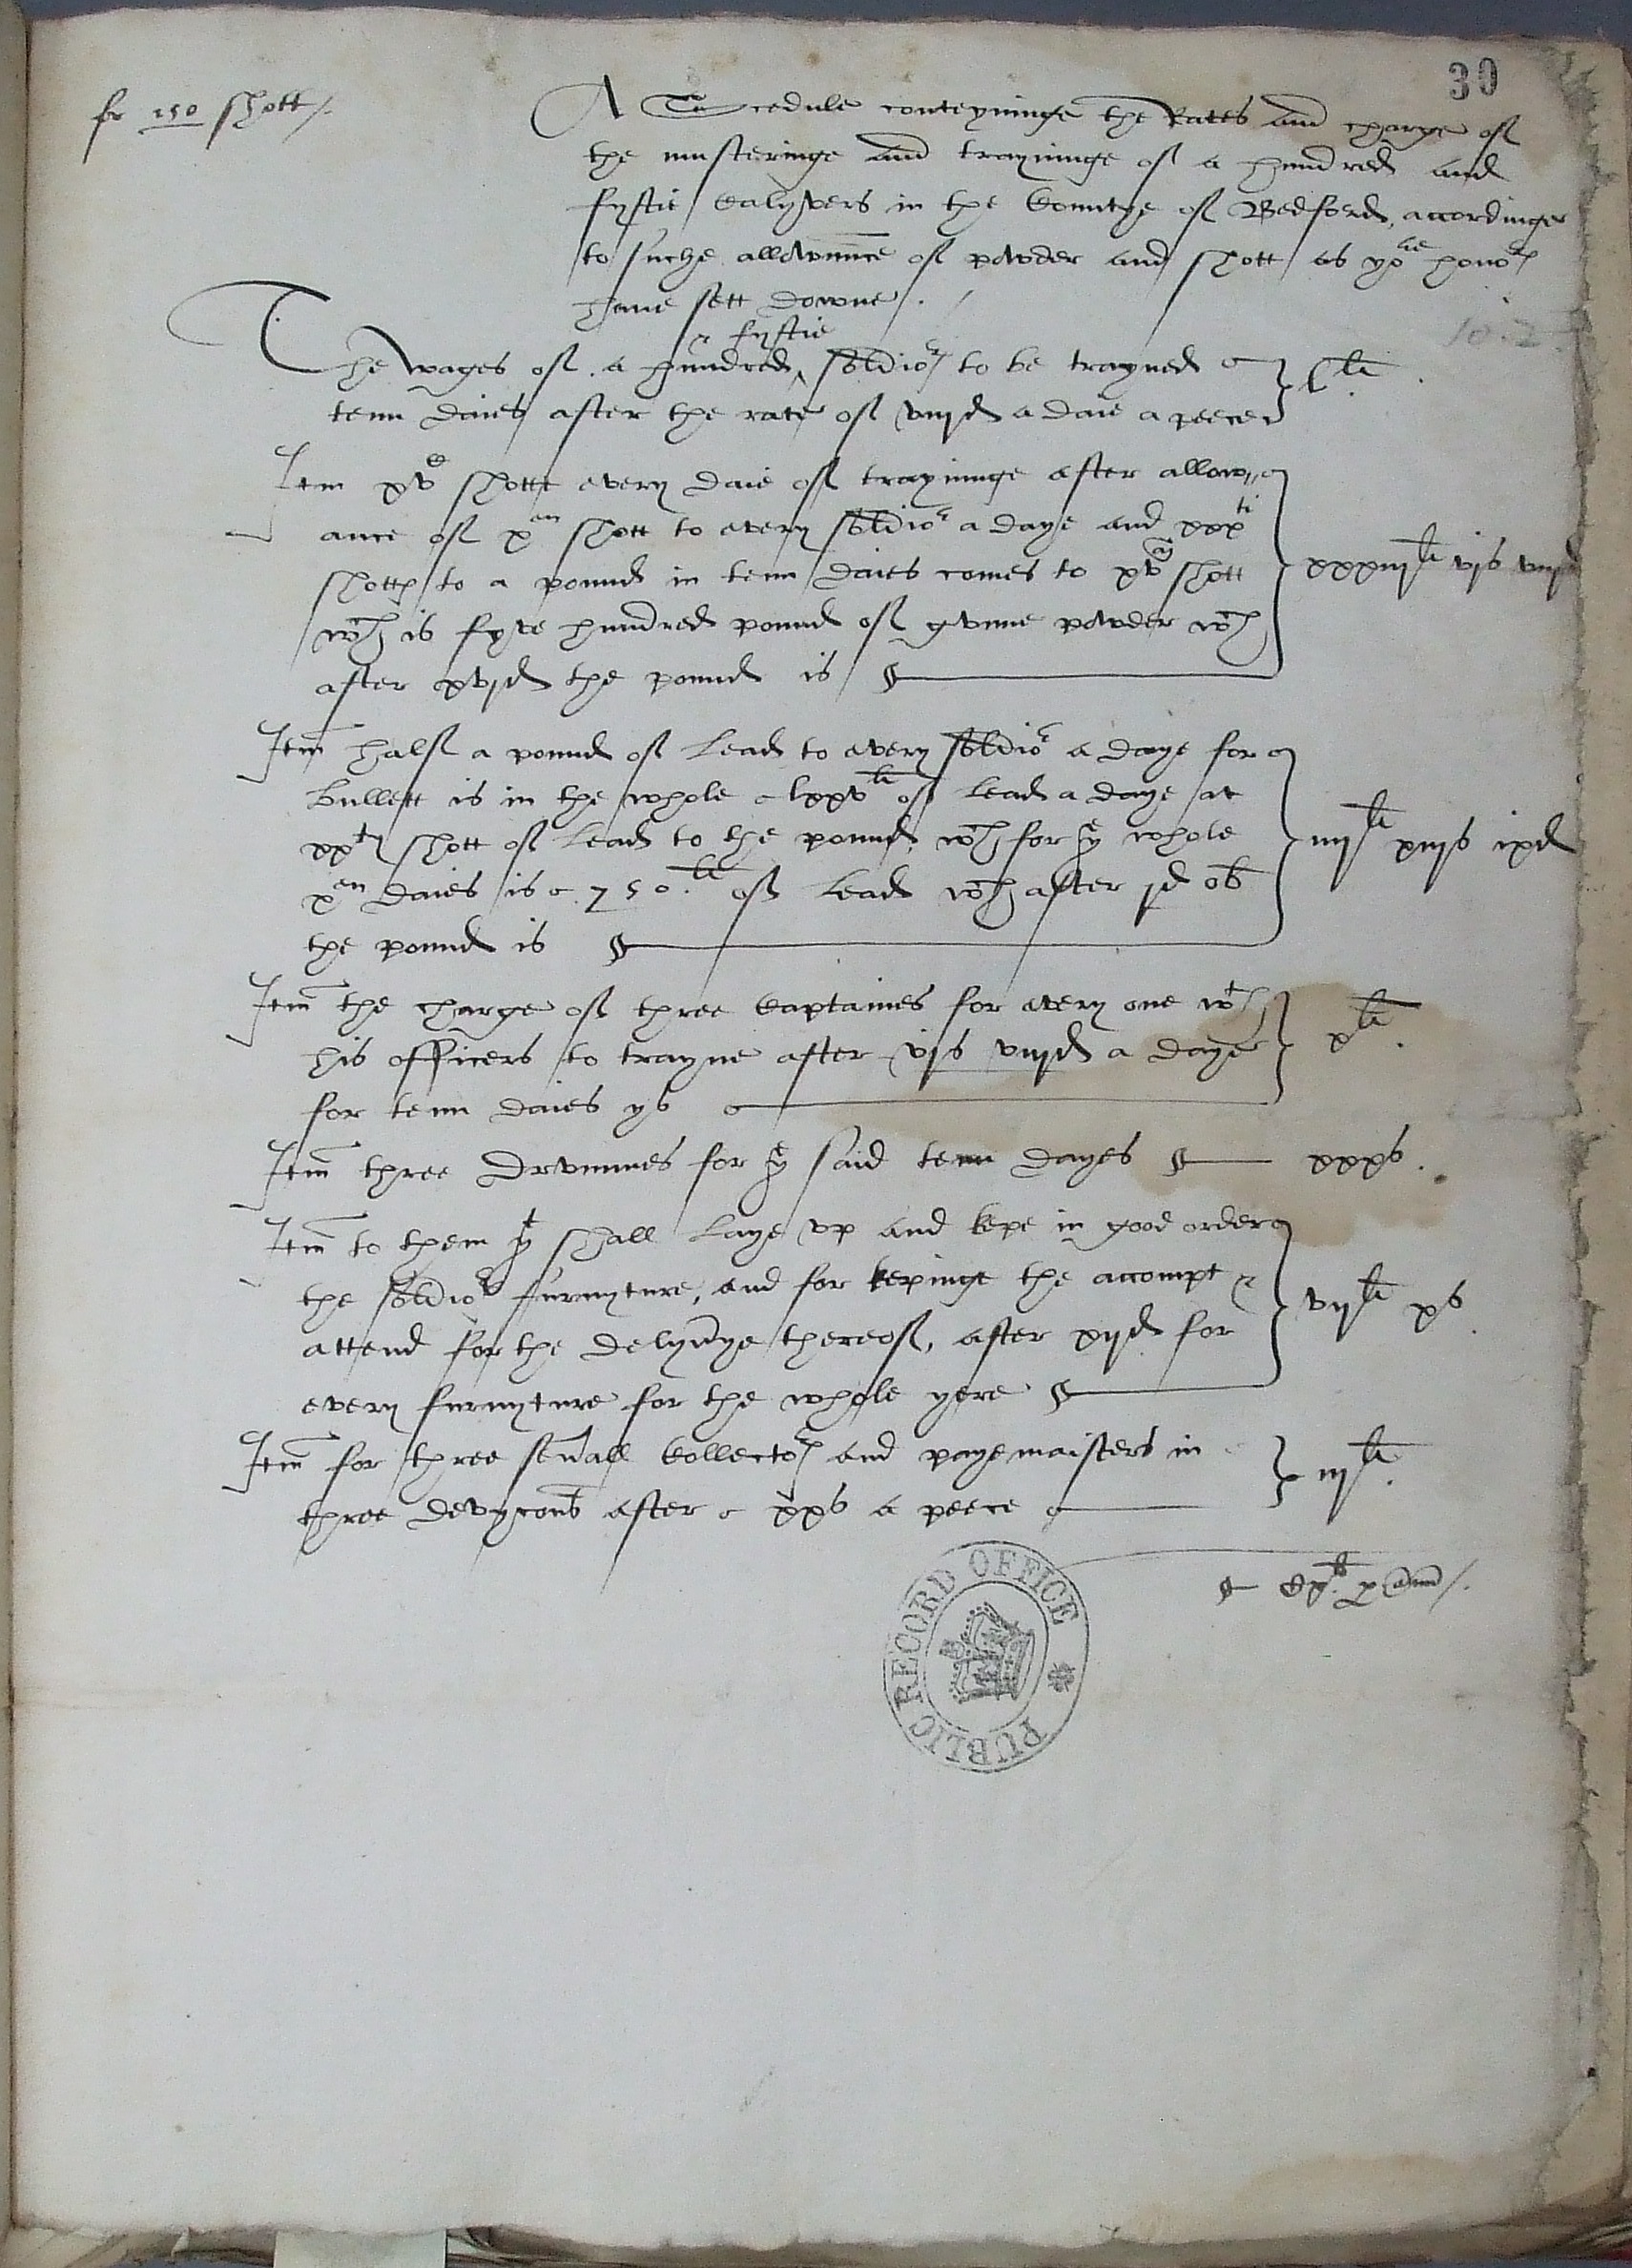 30
for 150 shott /.
A Scedule conteyninge the Rates and charge of
the musteringe and trayninge of a hundred and
fyftie Calyvers in the Countye of Bedford, accordinge
to suche allowaunce of powder and shott as yor honors
have sett downe /.
The wages of a hundred ^ & fyftie soldiors to be trayned
tenn daies after the rate of viijd a daie a peece } Lli.
Itm xvc shotte every daie of trayninge after allow„
ance of xen shott to every soldior a daye and xxxti
shotts to a pound in tenn daies comes to xvM shott
wch is fyve hundred pound of gunne powder wch
after xvjd the pound is } xxxiijli vjs viijd
Itm half a pound of lead to every soldior a daye for
bullett is in the whole lxxvli of lead a daye at
xxty shott of lead to the pound, wch for ye whole
xen daies is 750.li of lead wch after jd ob
the pound is } iiijli xiijs ixd
Itm the charge of three Captaines for every one wth
his officers to trayne after vjs viijd a daye
for tenn daies ys } xli.
Itm three Drummes for ye said tenn dayes xxxs.
Itm to them yt shall laye up and kepe in good order
the soldiors furnyture, and for kepinge the accompt &
attend for the delyvye thereof, after xijd for
every furnyture for the whole yere } vijli xs
Itm for three sevall Collectors and paye maisters in
three devycons after xxs a peece } iijli.
Cxli. p Ann /.
PUBLIC RECORD OFFICE